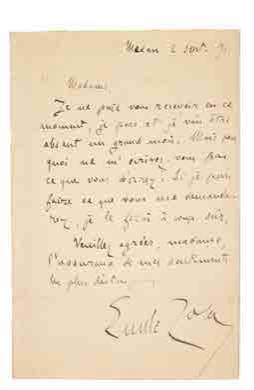 Médan 2 sept. 91
Madame,
Je ne puis vous recevoir en ce
moment, je pars et je vais être
absent un grand mois. Mais pour
quoi ne m'écrivez-vous pas
ce que vous désirez. Si je puis
faire ce que vous me demande-
rez, je le ferai à coup sûr.
Veuillez agréer, madame,
l'assurance de mes sentiments
les plus distingués
Emile Zola